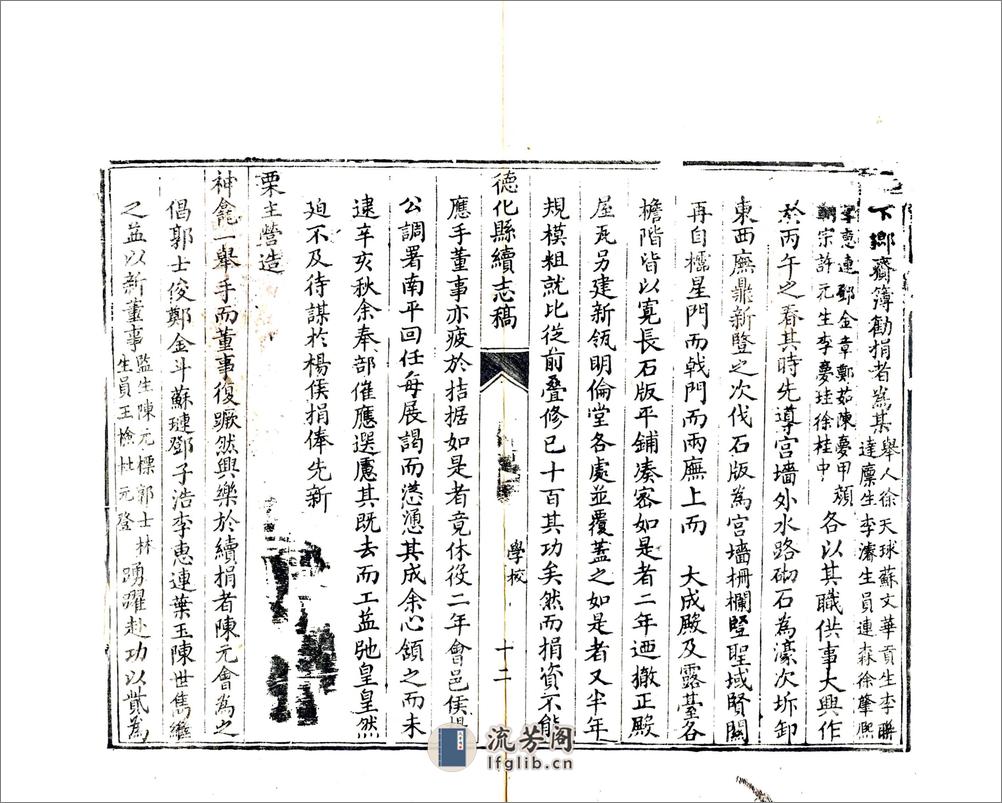 下鄉齎簿勸捐者爲某舉人徐天球蘇文華貢生李聯
達廩生李濬生員連森徐肇熙
李惠連鄧金章鄭茹陳夢甲賴
朝宗許元生李夢珪徐桂中
各以其職供事大興作
於丙午之春其時先導宫墻外水路砌石為濠次坼卸
東西廡鼎新竪之次伐石版為宫墻柵欄竪聖域賢關
再自櫺星門而戟門而兩廡上而 大成殿及露臺各
檐階皆以寛長石版平鋪凑宻如是者二年迺撤正殿
屋瓦另建新瓴明倫堂各處並覆蓋之如是者又半年
規模粗就比從前叠修已十百其功矣然而捐資不能
德化縣續志稿 學校 十二
應手董事亦疲於拮据如是者竟休役二年會邑侯楊
公調署南平回任每展謁而慫慂其成余心領之而未
逮辛亥秋余奉部催應選慮其既去而工益弛皇皇然
廹不及待謀於楊侯捐俸先新
栗主營造
神龕一舉手而董事復蹶然興樂於續捐者陳元會為之
倡郭士俊鄭金斗蘇璉鄧子浩李惠連葉玉陳世雋繼
之並以新董事監生陳元標郭士林
生員王檢杜元登
踴躍赴功以貳為
流芳阁
lfglib.cn